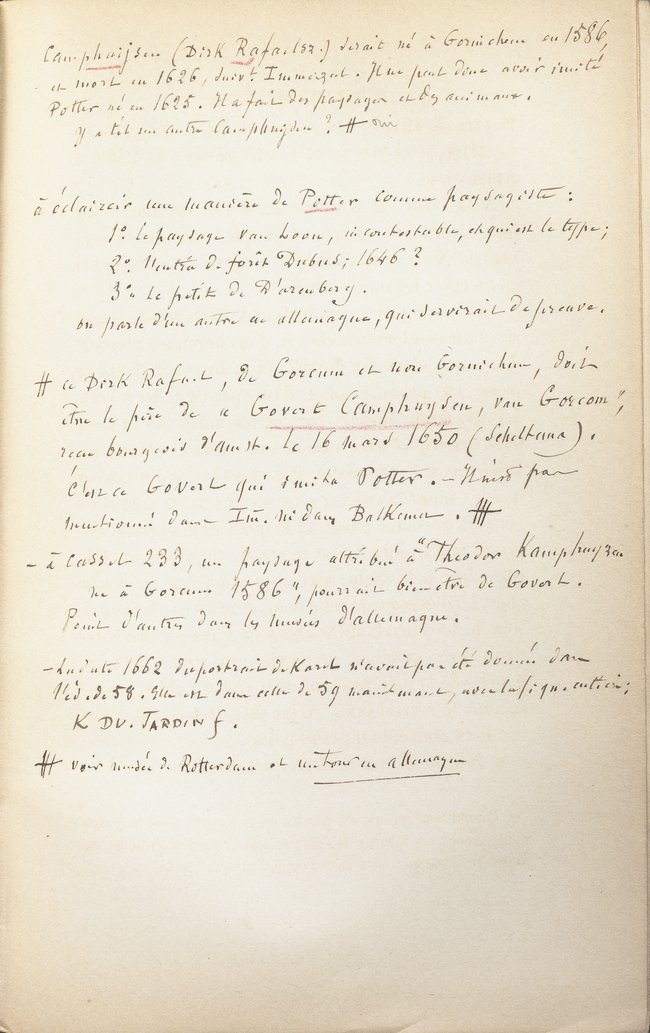 Camphuijsen (Dirk Rafaelsz.) serait né à Gorinchem en 1586,
et mort en 1626, suivt Immerzeel. Il ne peut donc avoir imité
Potter né en 1625. Il a fait des paysages et des animaux.
Y a t'il un autre Camphuijsen ? # oui
à éclaircir une manière de Potter comme paysagiste :
1º. le paysage van Loon, incontestable, et qui est le type ;
2º. l'entrée de forêt Dubus ; 1646 ?
3º. le petit de D'arenberg.
on parle d'un autre en allemagne, qui servirait de preuve.
# ce Dirk Rafael, de Gorcum et non Gorinchem, doit
être le père de ce Govert Camphuysen, van Gorcom",
reçu bourgeois d'amst. le 16 mars 1650 (Scheltema).
C'est ce Govert qui imita Potter. — Il n'est pas
mentionné dans Im. ni dans Balkema. #
— à Cassel 233, un paysage attribué à "Theodor Kamphuyzen
né à Gorcum 1586", pourrait bien être de Govert.
Point d'autres dans les musées d'allemagne.
— La date 1662 du portrait de Karel n'avait pas été donnée dans
l'éd. de 58. Elle est dans celle de 59 maintenant, avec la sig. entière ;
K DU. JARDIN f.
# voir musée de Rotterdam et en allemagne